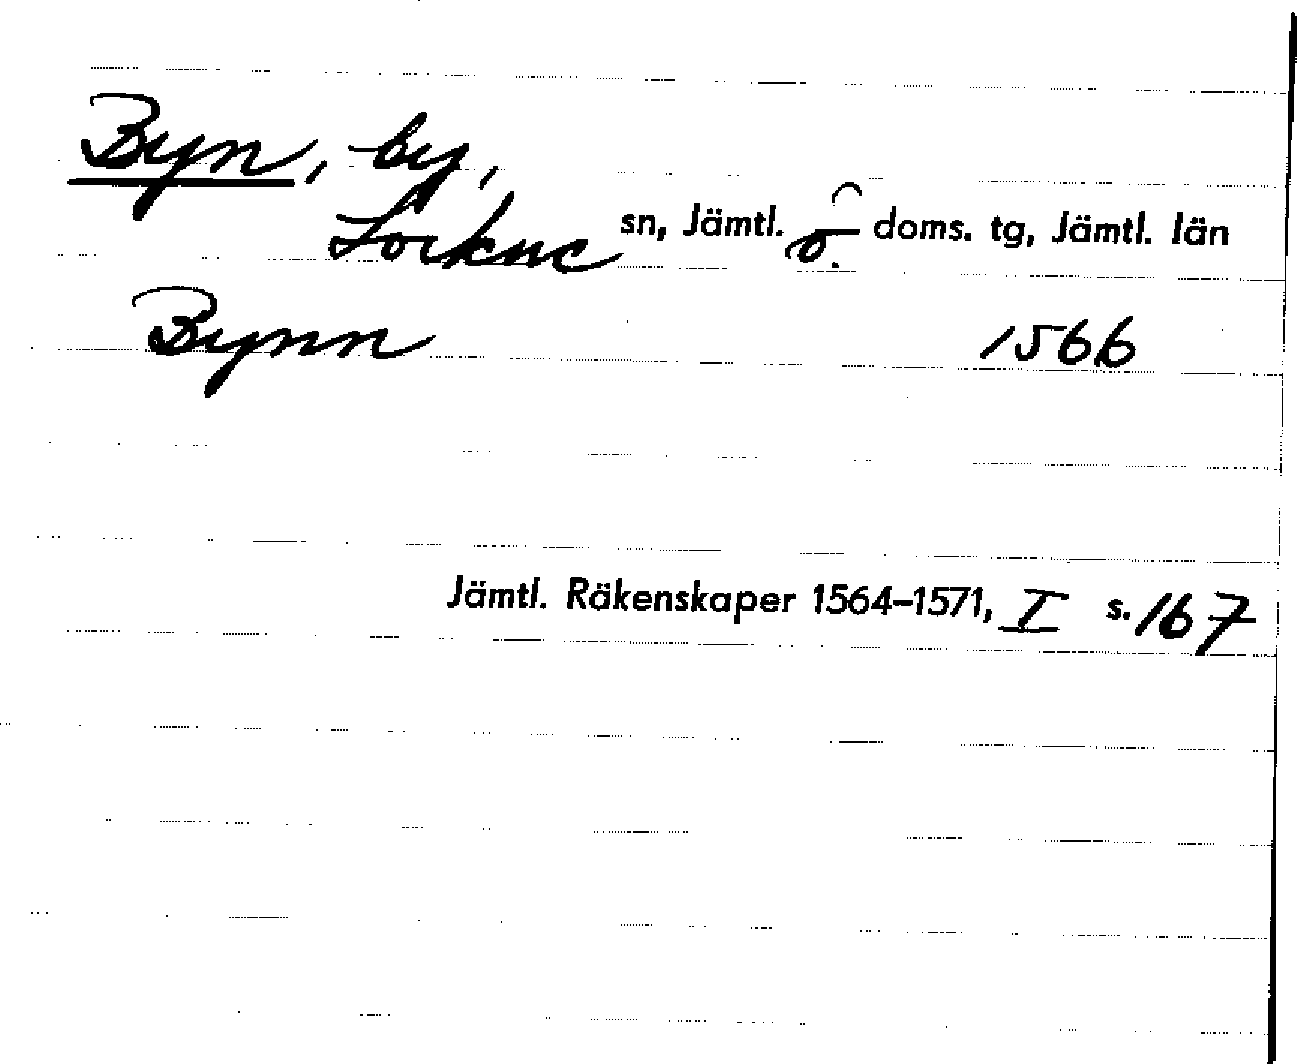 Byn, by,
Lockne sn, Jämtl. ö. doms. tg, Jämtl. län
Bynn 1566
Jämtl. Räkenskaper 1564–1571, I s. 167